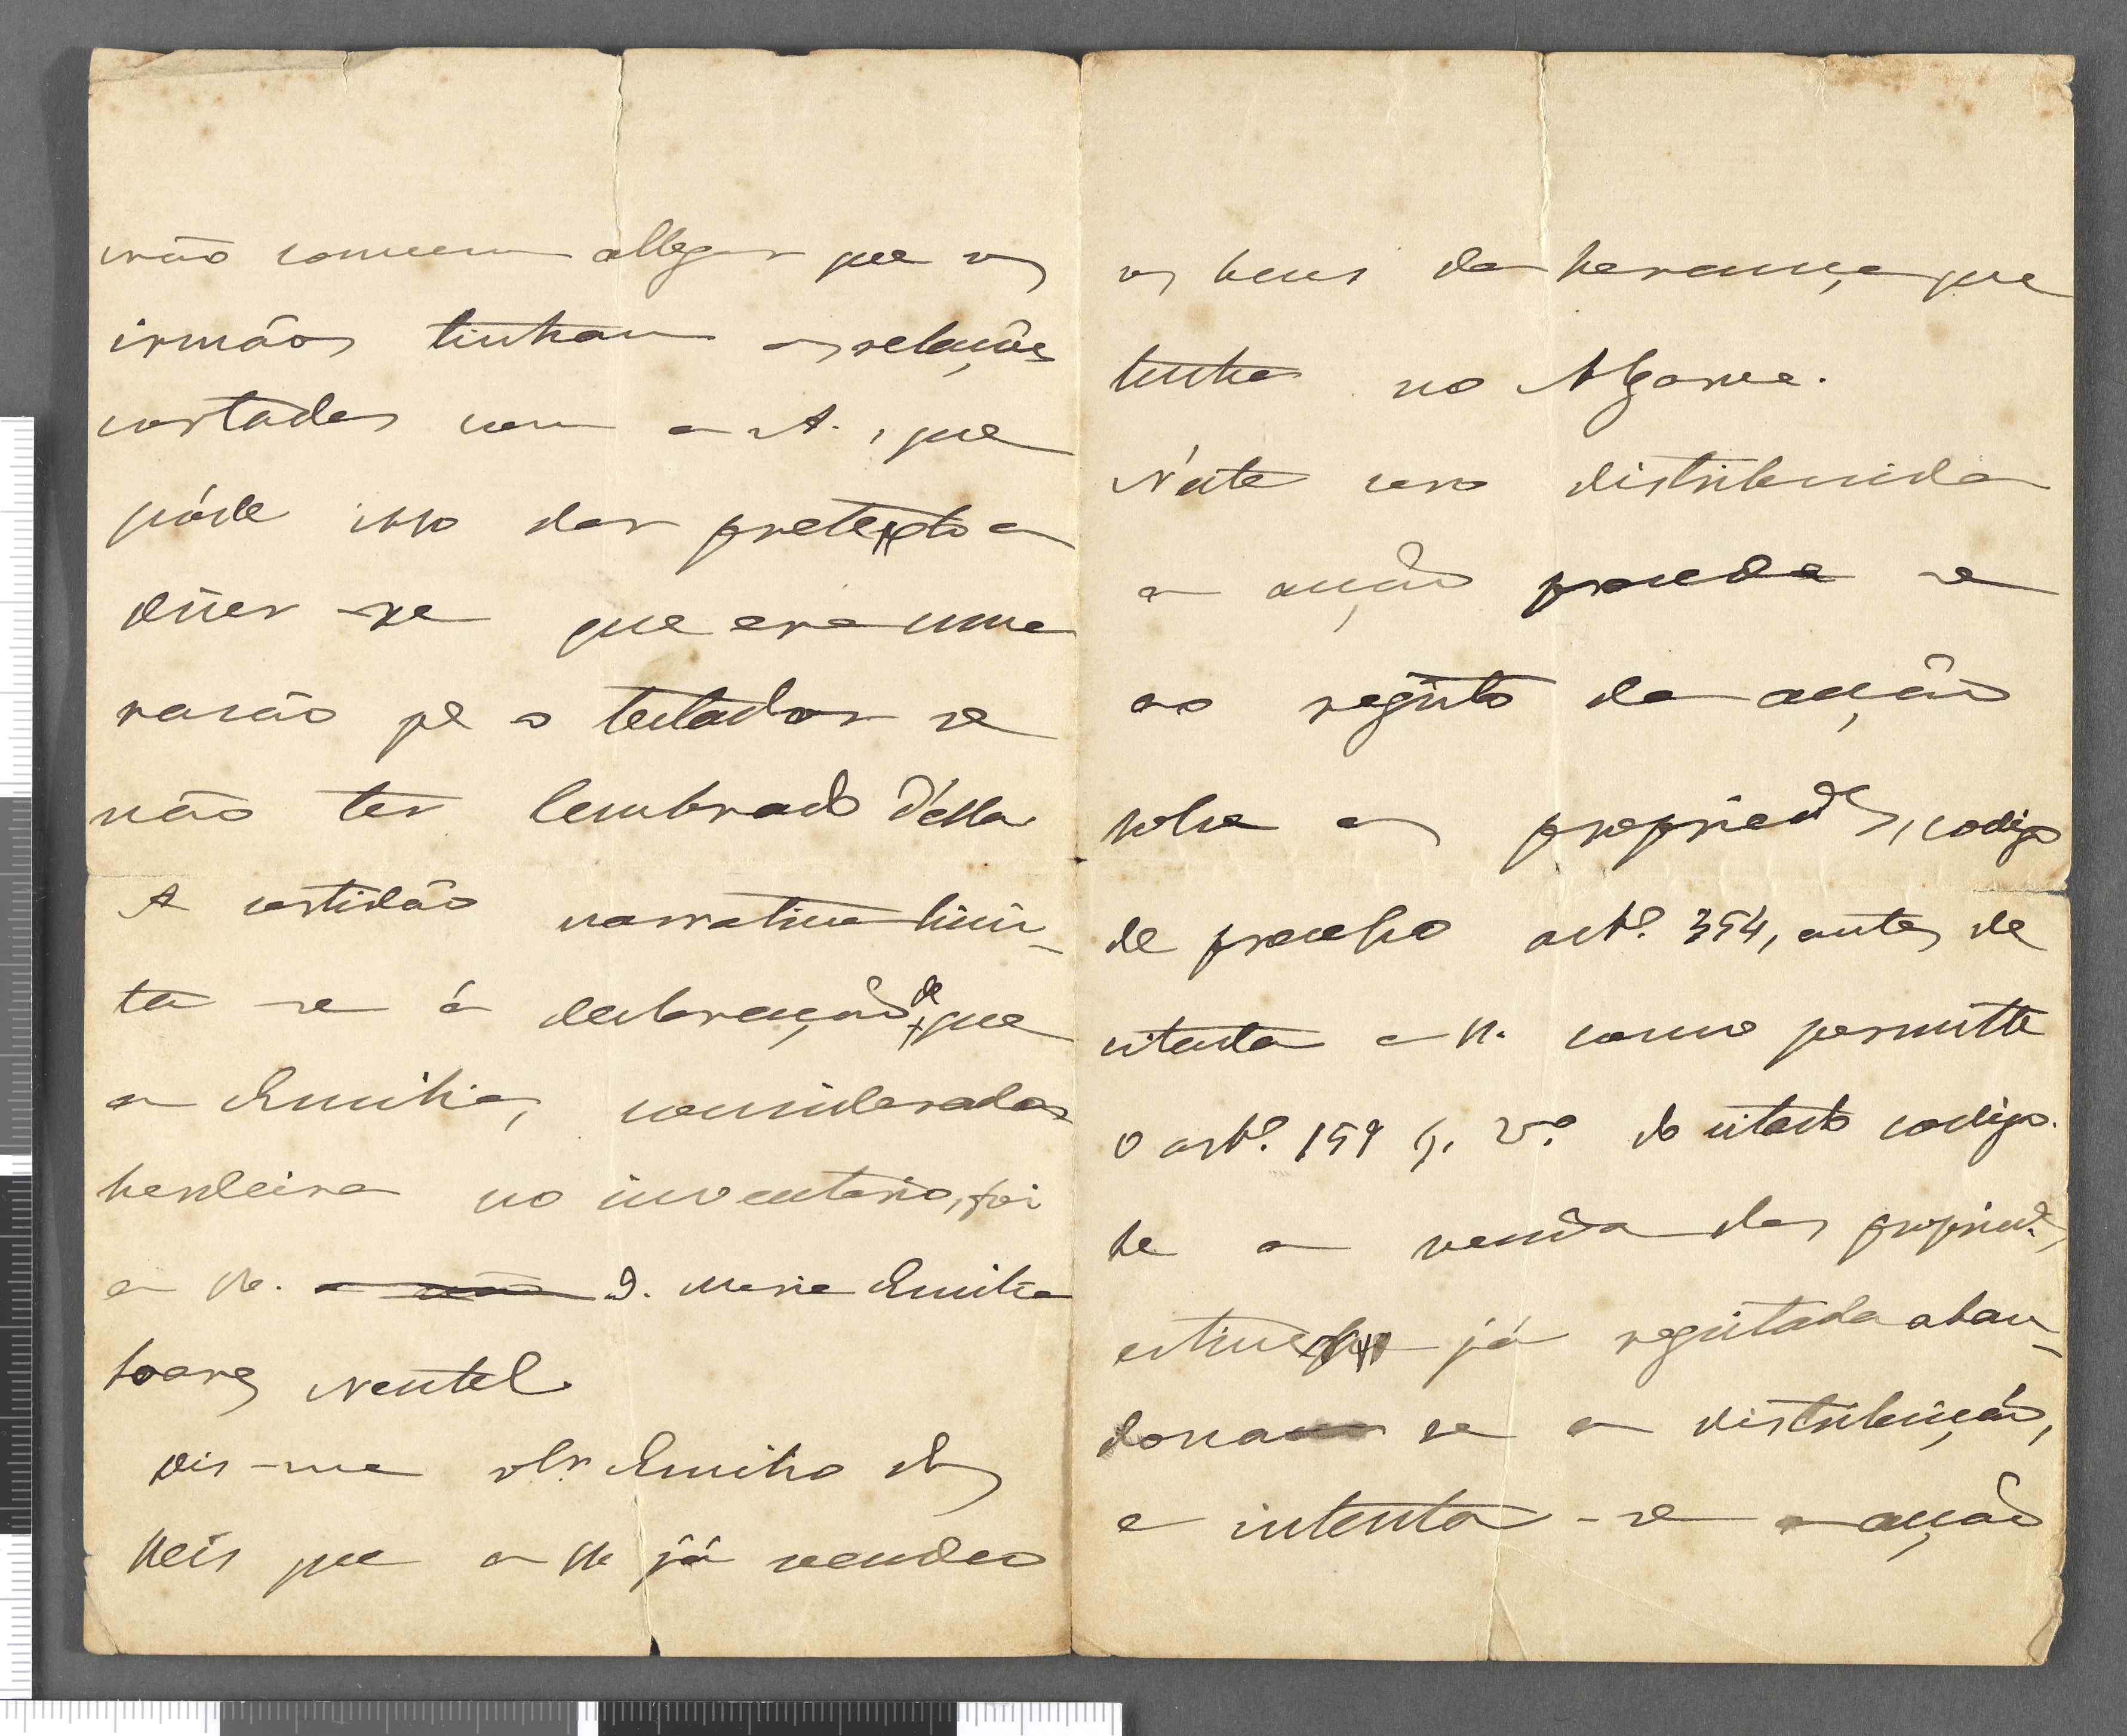 não convem allegar que os
irmãos tinham as relações
cortadas com a A., que
póde isso dar pretexto a
dizer-se que era uma
rasão pa o testador se
não ter lembrado d'ella
A certidão narrativa limi-
ta-se á declaração de que
a Emilia, considerada
herdeira no inventario, foi
a R. D. Maria Emilia
Soares Neutel
Diz-me o Sr. Emilio dos
Reis que a R. já vendeo
os bens da herança que
tinha no Algarve.
N'este caso distribuida
a acção proceda se
ao registo da acção
sobre as proprieds, codigo
de processo artº. 354, antes de
citada a R. como permitte
o artº. 159 §. 2º. do citado codigo.
Se a venda das propried.,
estiver já registada aban-
dona se a distribuição,
e intenta-se a acção